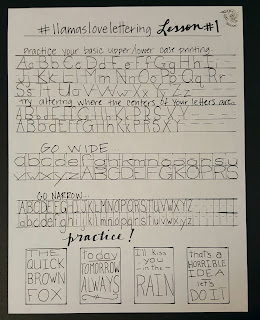 #llamaslovelettering Lesson #1
practice your basic upper/lower case printing
Aa Bb Cc Dd Ee Ff Gg Hh Ii
Jj Kk Ll Mm Nn Oo Pp Qq Rr
Ss Tt Uu Vv Ww Xx Yy Zz
try altering where the centers of your letters are..
GO WIDE...
abcdefghijklmnopqrstu
vwxyz ABCDEFGHIJKLMNOPQRS
GO NARROW...
ABCDEFGHIJKLMNOPQRSTUVWXYZ
abcdefghijklmnopqrstuvwxyz
practice!
THE
QUICK
BROWN
FOX
Today
TOMORROW
ALWAYS
I'll kiss
you
in the
RAIN
that's a
HORRIBLE
IDEA
let's
DO IT